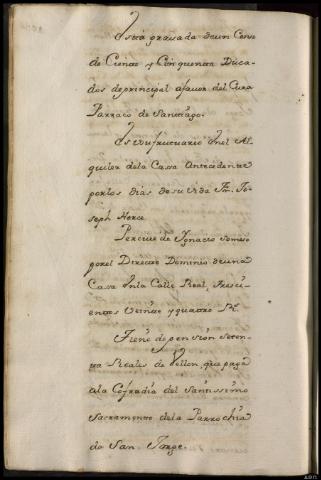 Está gravada deun Censo
de Ciento y Cinquenta Duca-
dos deprincipal afavor del Cura
Parraco de Santiago.
Es Usufructuario enel Al-
quiler dela Cassa Antecedente
porlos dias desu vida Fr. Jo-
seph
Percive de Ignacio
porel Directo Dominio deuna
Casa enla Calle Real, trescï-
entos Veinte y quatro Rs.
Tiene depension seten-
ta Reales de Vellon, que paga
ala Cofradia del Santissimo
Sacramento dela Parrochia
de San Jorge.